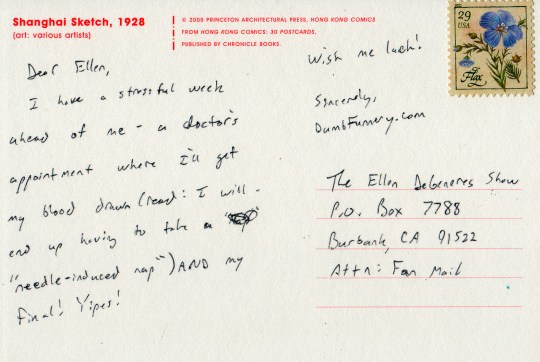 Shanghai Sketch, 1928
(art: various artists)
© 2008 PRINCETON ARCHITECTURAL PRESS, HONG KONG COMICS
FROM HONG KONG COMICS: 30 POSTCARDS,
PUBLISHED BY CHRONICLE BOOKS.
29
USA
Flax
Dear Ellen,
I have a stressful week
ahead of me - a doctor's
appointment where I'll get
my blood drawn (read: I will
end up having to take a
"needle-induced nap") AND my
final! Yipes!
Wish me luck!
Sincerely,
DumbFunnery.com
The Ellen DeGeneres Show
P.O. Box 7788
Burbank, CA 91522
Attn: Fan Mail